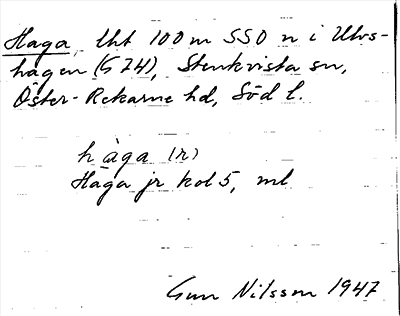 Haga, lht 100 m SSO n i Ulvs-
hagen (G 74), Stenkvista sn,
Öster-Rekarne hd, Söd l.
hàga (n)
Haga jr kol 5, ml
Gun Nilsson 1947